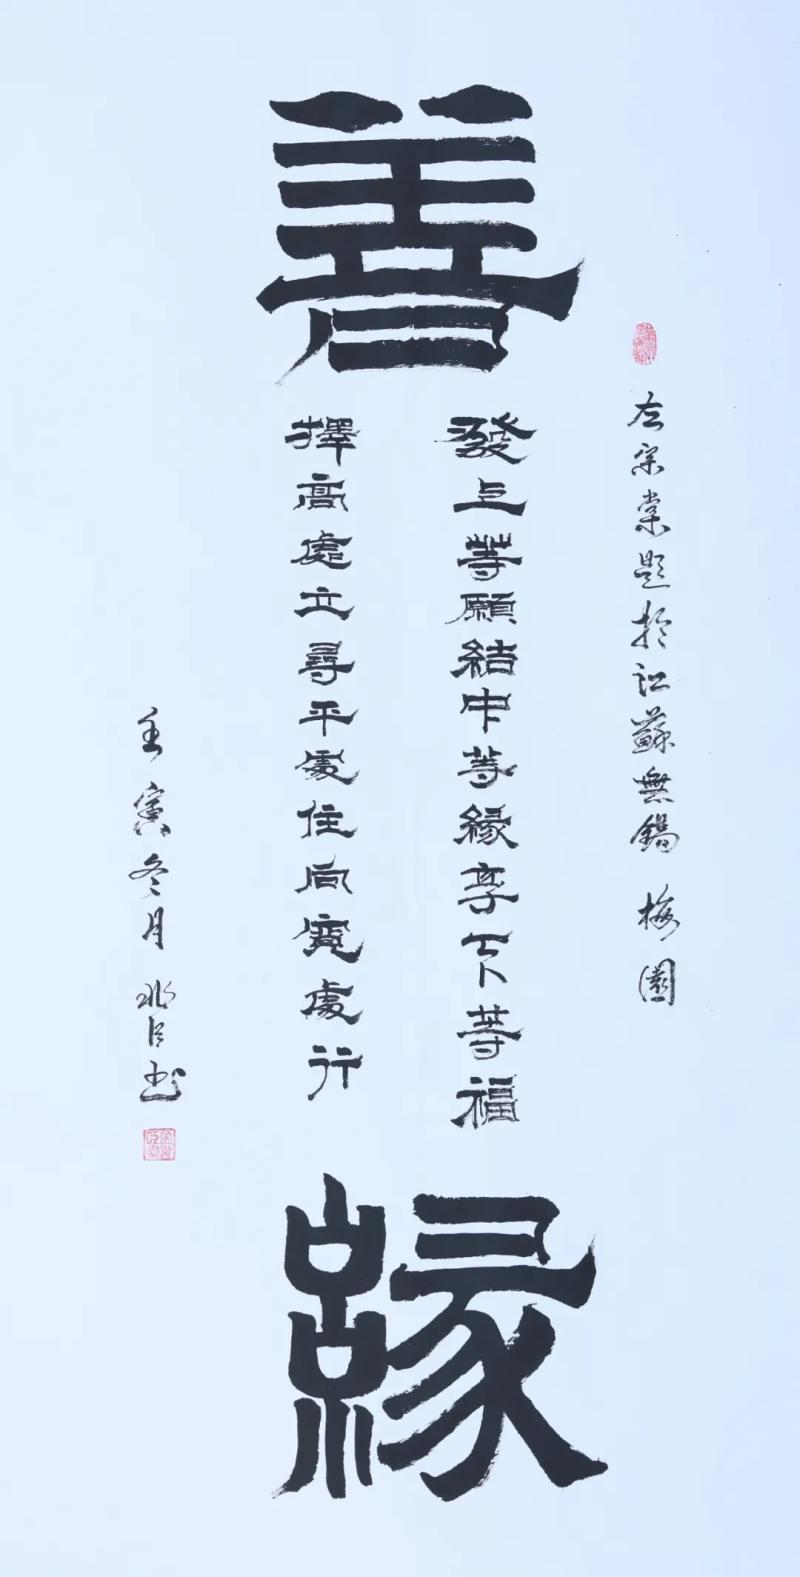 善
緣
左宗棠題於江蘇無錫 梅園
發上等願結中等緣享下等福
擇高處立尋平處住向寬處行
壬寅冬月 兆臣書